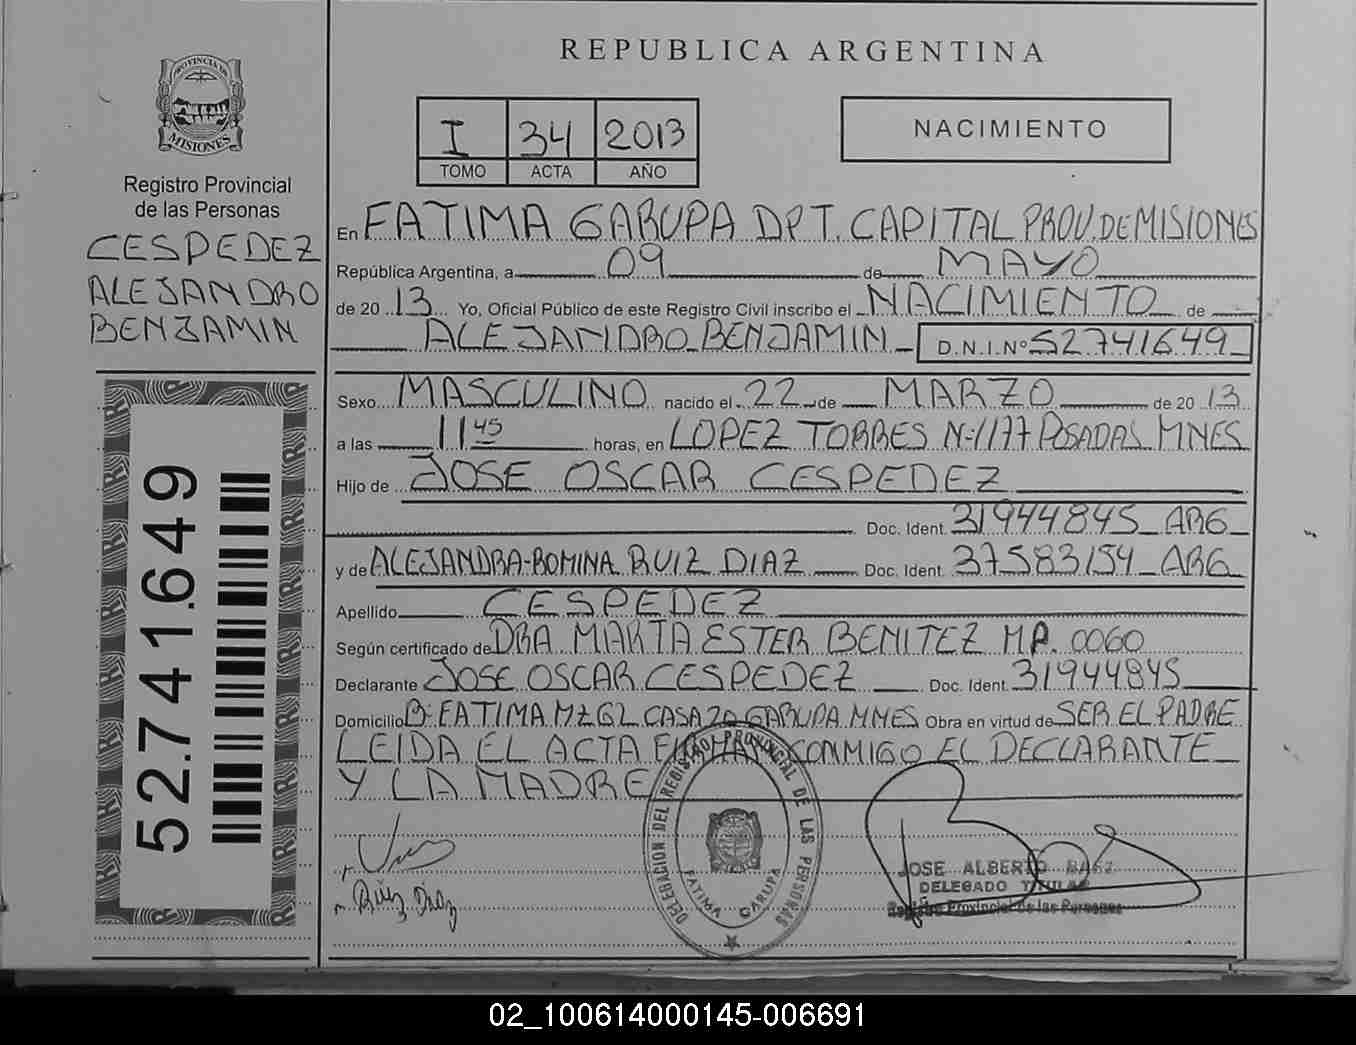 REPUBLICA ARGENTINA
PROVINCIA DE
MISIONES
Registro Provincial
de las Personas
CESPEDEZ
ALEJANDRO
BENJAMIN
52.741.649
I 34 2013
TOMO ACTA AÑO
NACIMIENTO
En FATIMA GARUPA DPT. CAPITAL PROV. DE MISIONES
República Argentina, a 09 de MAYO
de 2013 Yo, Oficial Público de este Registro Civil inscribo el NACIMIENTO de
ALEJANDRO BENJAMIN D.N.I. Nº 52741649
Sexo MASCULINO nacido el 22 de MARZO de 2013
a las 11 45 horas, en LOPEZ TORRES Nº 1177 POSADAS MNES
Hijo de JOSE OSCAR CESPEDEZ
Doc. Ident. 31944845 ARG
y de ALEJANDRA-ROMINA RUIZ DIAZ Doc. Ident. 37583154 ARG
Apellido CESPEDEZ
Según certificado de DRA MARTA ESTER BENITEZ MP. 0060
Declarante JOSE OSCAR CESPEDEZ Doc. Ident. 31944845
Domicilio Bº FATIMA MZ GL CASA 20 GARUPA MNES Obra en virtud de SER EL PADRE
LEIDA EL ACTA FIRMAN CONMIGO EL DECLARANTE
Y LA MADRE
DELEGACION DEL REGISTRO PROVINCIAL DE LAS PERSONAS
FATIMA GARUPA
Ruiz Diaz
JOSE ALBERTO BAEZ
DELEGADO TITULAR
Registro Provincial de las Personas
02_100614000145-006691